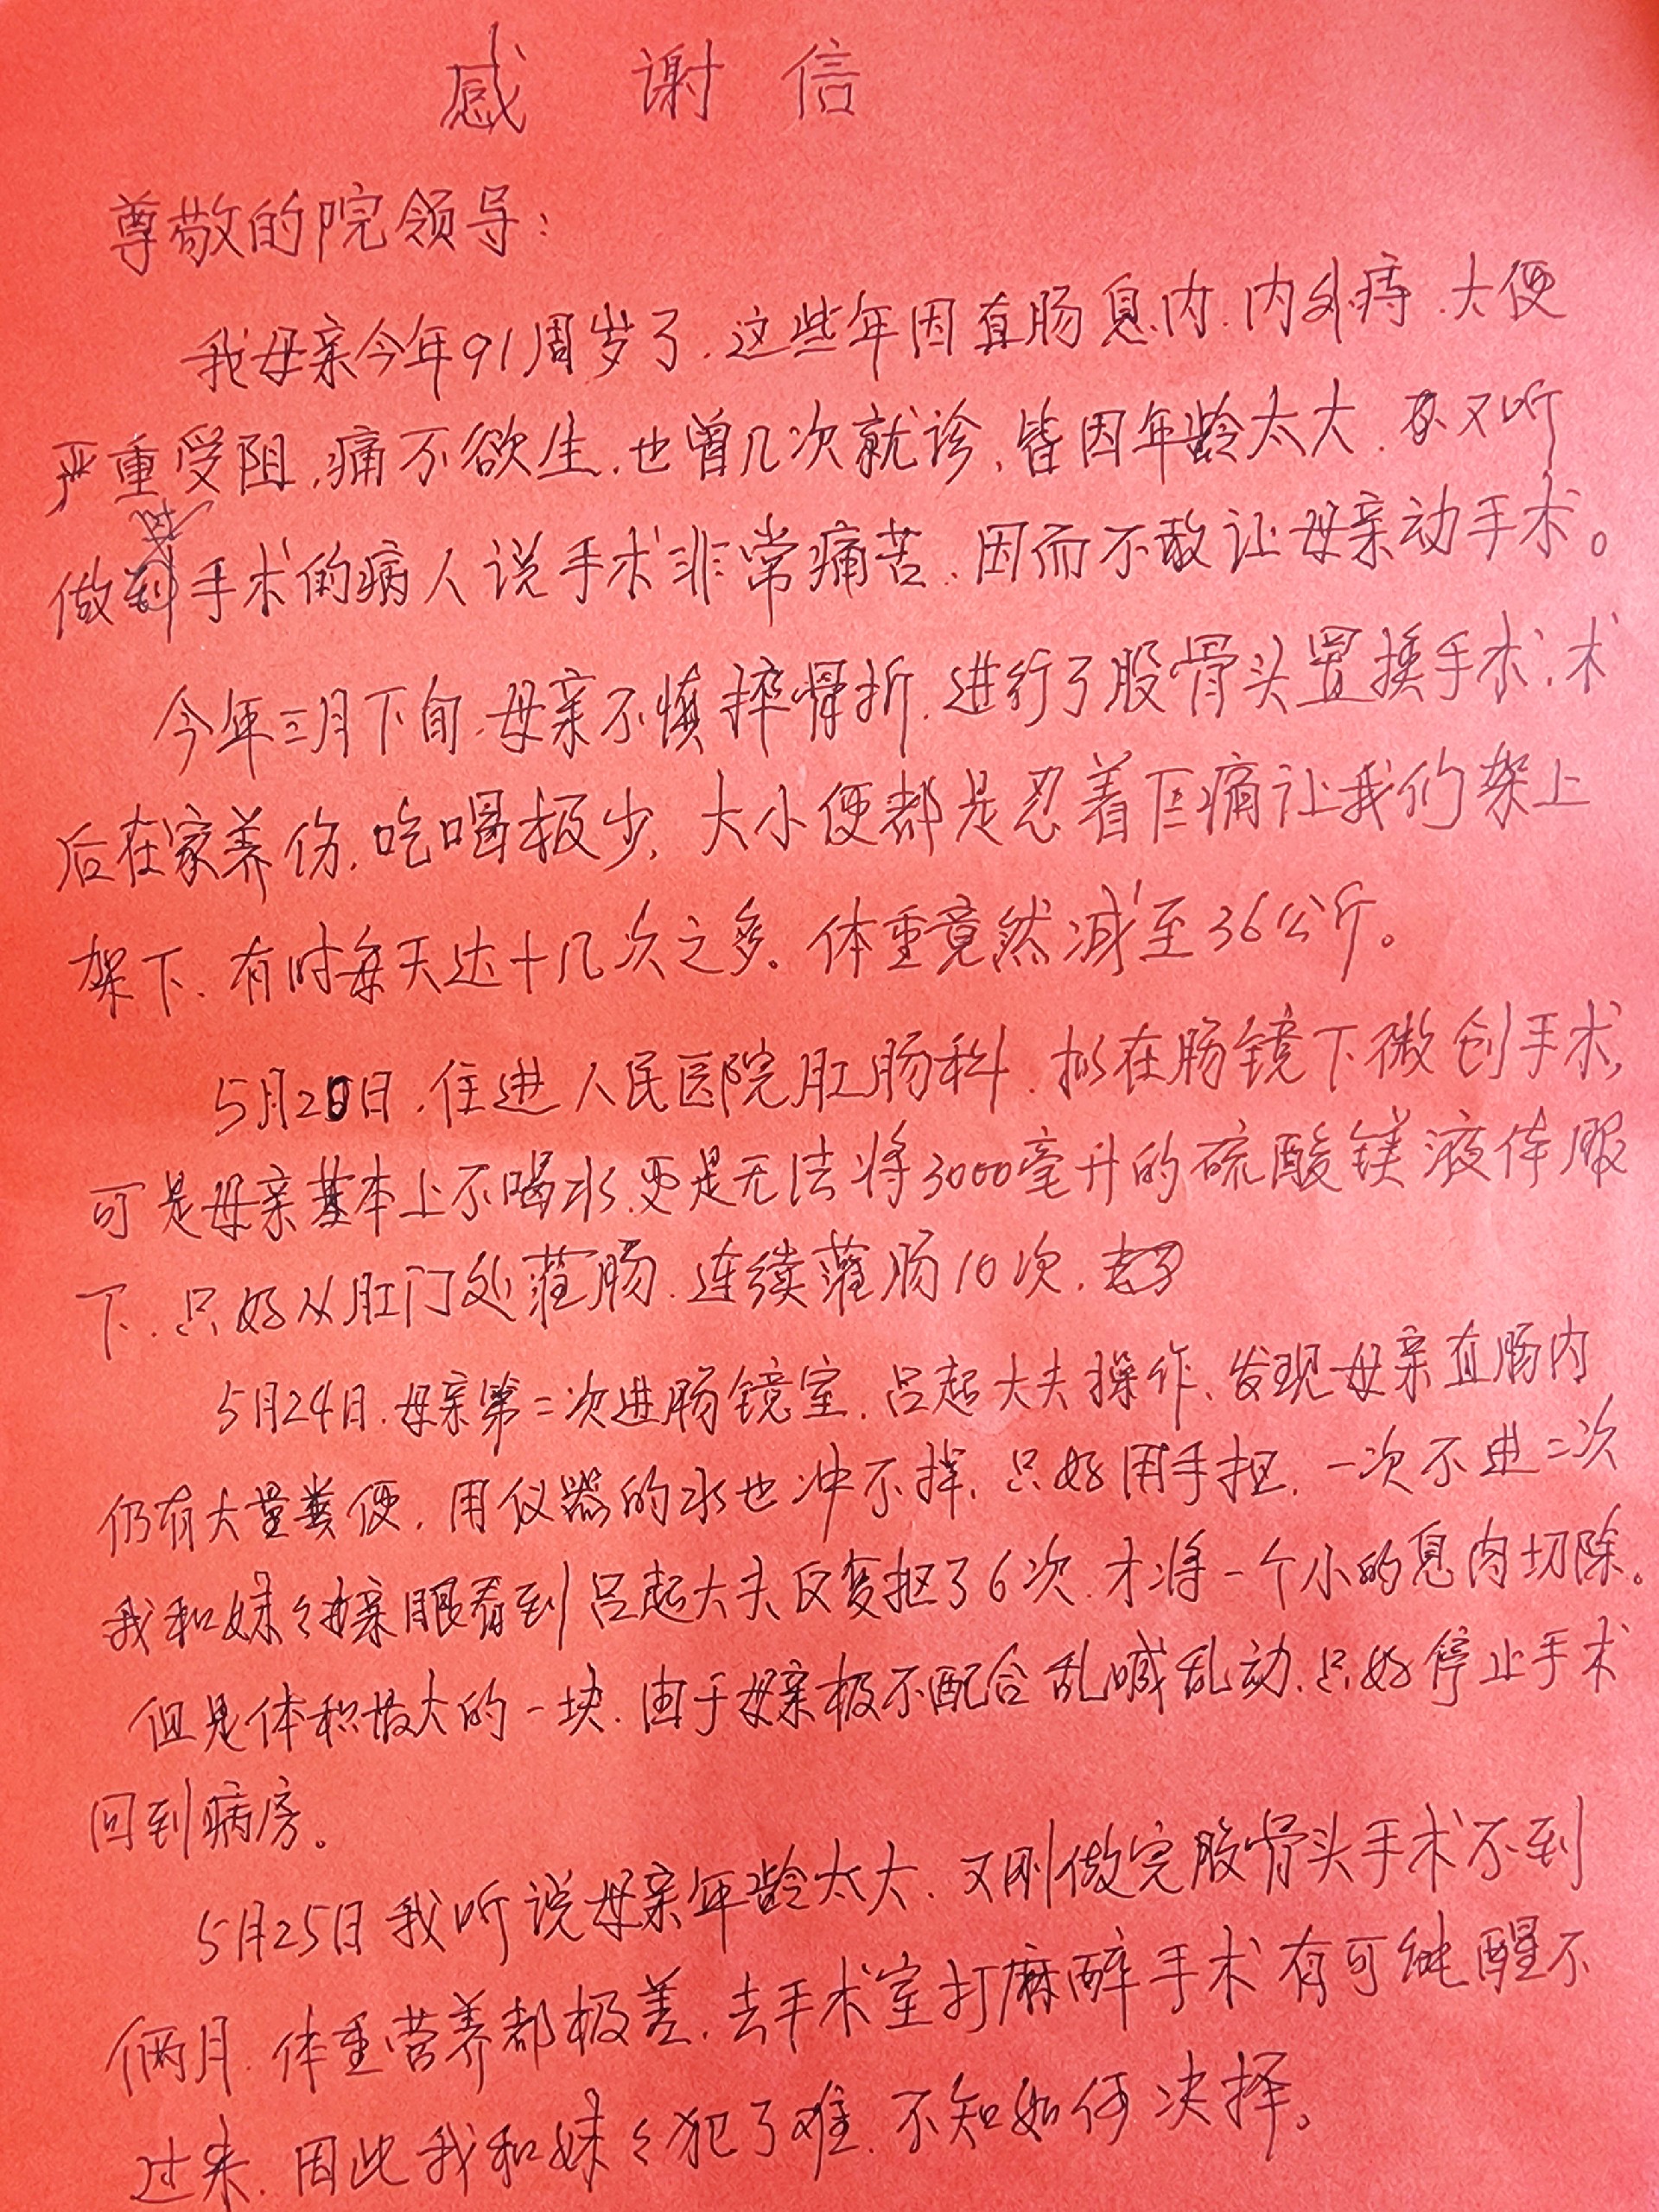 感谢信
尊敬的院领导：
我母亲今年91周岁了，这些年因直肠息肉、内外痔、大便
严重受阻，痛不欲生，也曾几次就诊，皆因年龄太大，又听
做过手术的病人说手术非常痛苦，因而不敢让母亲动手术。
今年三月下旬，母亲不慎摔骨折，进行了股骨头置换手术，术
后在家养伤，吃喝极少，大小便都是忍着巨痛让我们架上
架下，有时每天达十几次之多。体重竟然减至36公斤。
5月20日，住进人民医院肛肠科，拟在肠镜下微创手术，
可是母亲基本上不喝水，更是无法将3000毫升的硫酸镁液体服
下，只好从肛门处灌肠，连续灌肠10次，
5月24日，母亲第二次进肠镜室，吕超大夫操作，发现母亲直肠内
仍有大量粪便，用仪器的水也冲不掉，只好用手抠，一次不进二次
我和妹々亲眼看到吕超大夫反复抠了6次，才将一个小的息肉切除。
但是体积最大的一块，由于母亲极不配合乱喊乱动，只好停止手术
回到病房。
5月25日我听说母亲年龄太大，又刚做完股骨头手术不到
俩月，体重营养都极差，去手术室打麻醉手术有可能醒不
过来，因此我和妹々犯了难，不知如何决择。